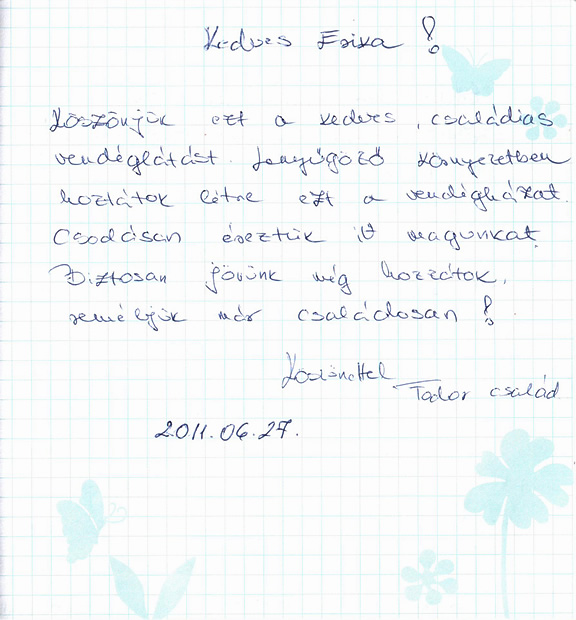 Kedves Erika !
Köszönjük ezt a kedves, családias
vendéglátást. Lenyűgöző környezetben
hoztátok létre ezt a vendégházat.
Csodásan éreztük itt magunkat.
Biztosan jövünk még hozzátok,
reméljük már családosan !
Köszönettel
Todor család
2011.06.27.